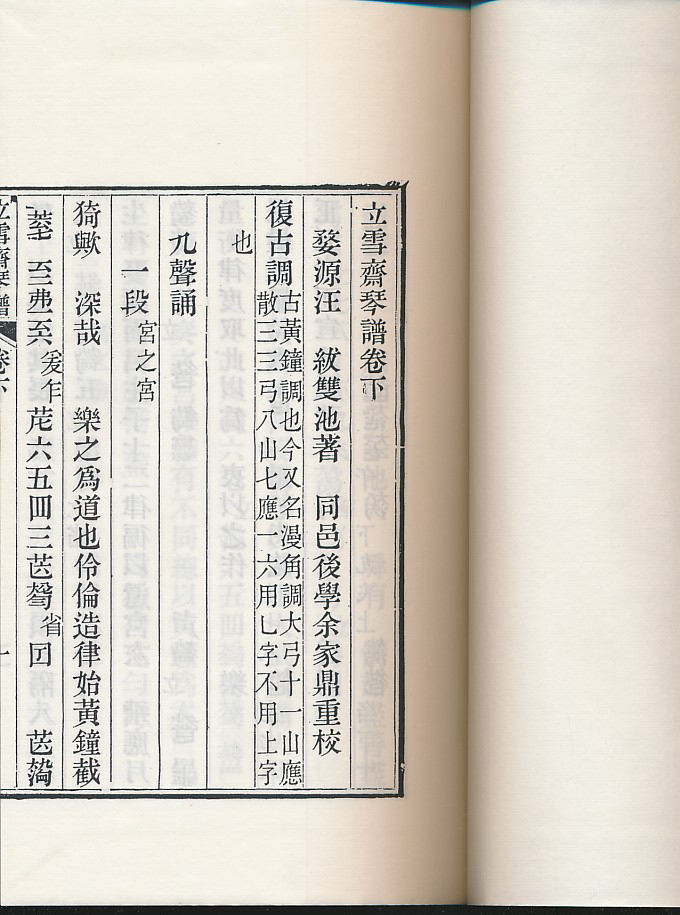 立雪齋琴譜卷下
婺源汪　紱雙池著　同邑後學余家鼎重校
復古調古黃鐘調也今又名漫角調大弓十一山應
散三三弓八山七應一六用乚字不用上字
也
九聲誦
一段宮之宮
猗歟　深哉　樂之爲道也伶倫造律始黃鐘截
爰乍　六五四三　省
立雪齋琴譜　卷下